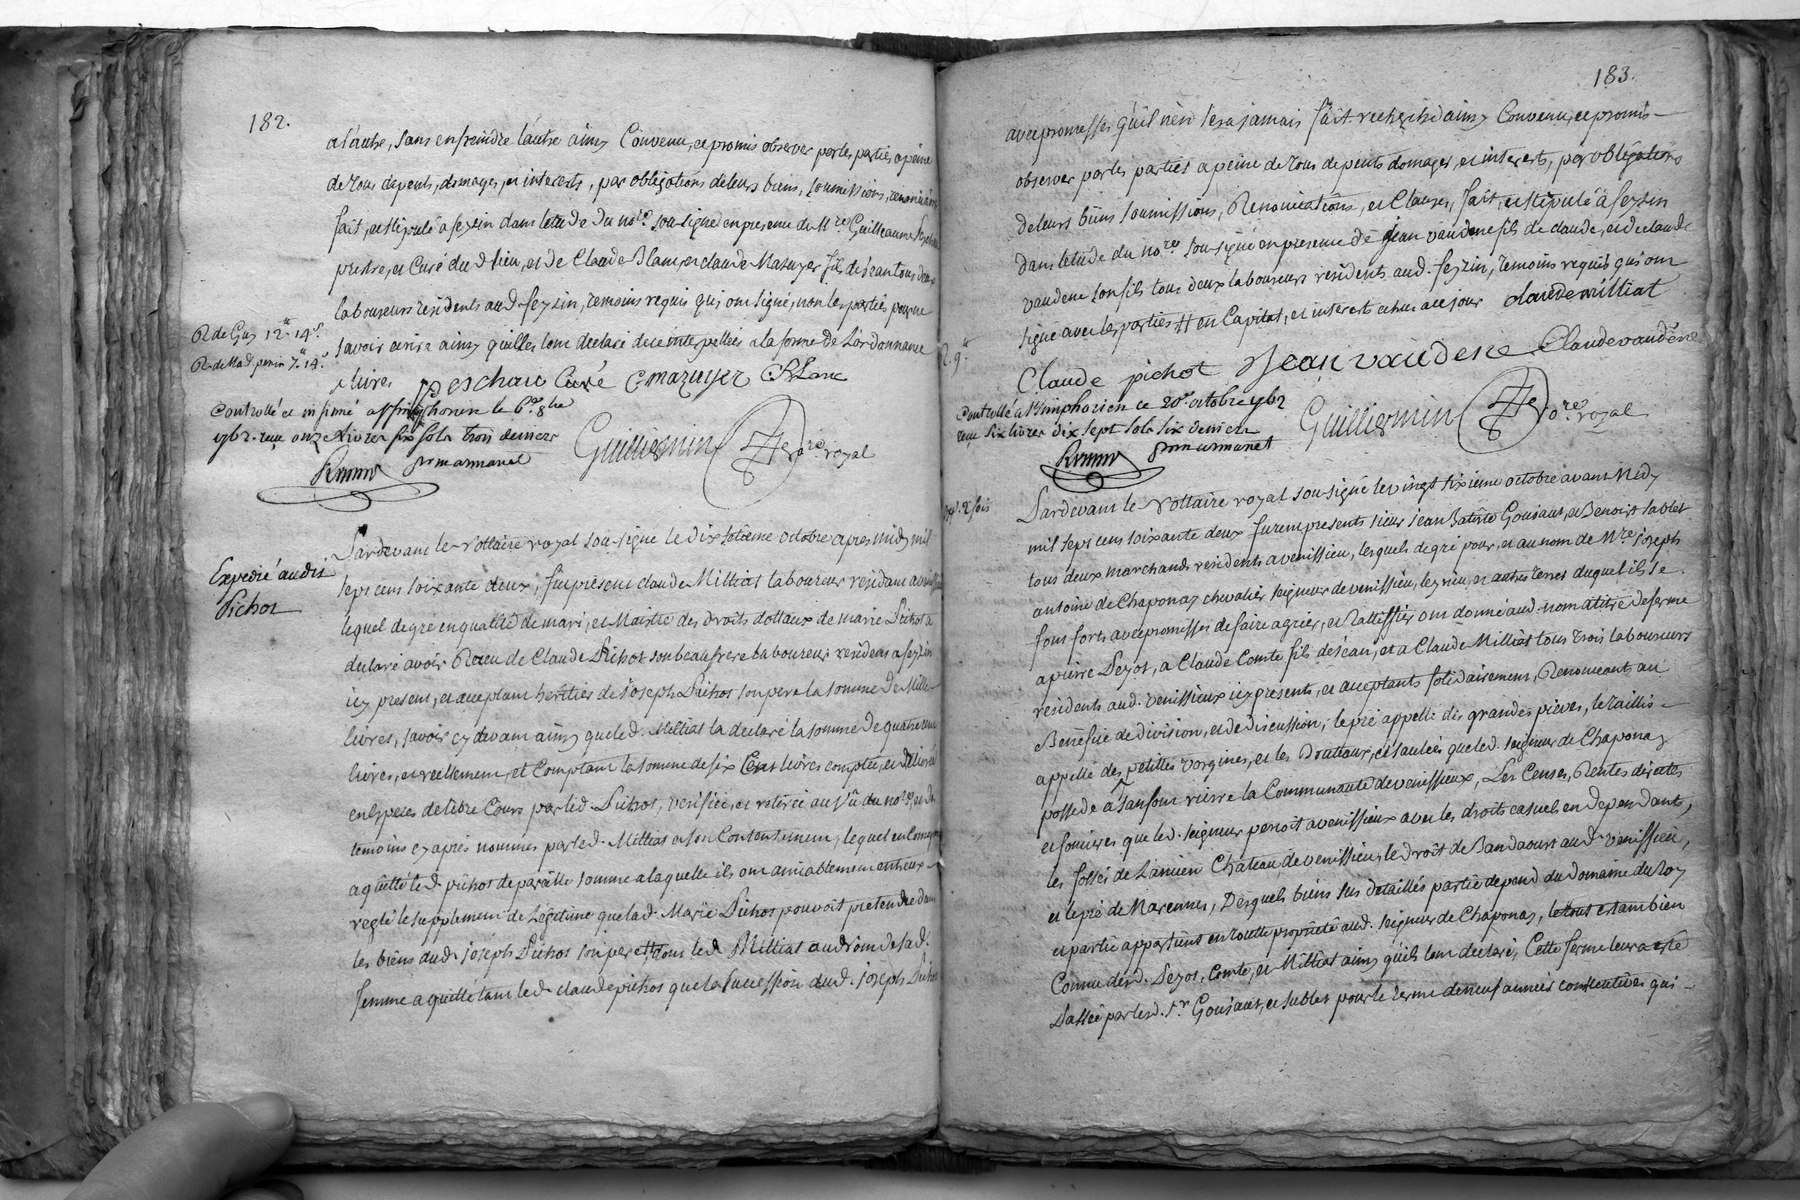 182.
a l'autre, sans enfreindre l'autre ainsy Convenu, et promis observer par les parties a peine
de tous depents, domages, et interests, par obligations de leurs biens, soumissions, renonciations
fait, et stipulé a feyzin dans letude du no.re sousigné en presence de M.re Guilleaume
prestre, et Curé dud. lieu, et de Claude Blanc, et claude Mazuyer fils de jean tous deux
laboureurs residents aud. feyzin, temoins requis qui ont signé, non les parties pour ne
savoir ecrire ainsy quelles l'ont declaré de ce interpellées a la forme de L'ordonnance
R. de 12.tt 14.s
R. de 7.tt 14.s
/ livres Deschau Curé C mazuyer C Blanc
Controllé et insinué a st Simphorien le 6.e 8bre
1762. reçu onze livres six sols trois deniers
par marmanet
Guilliermin No.re royal
Expedié audit
Pichot
Pardevant le Nottaire royal sousigné le dix setieme octobre apres midy mil
sept cens soixante deux, fut present claude Milliat laboureur residant a
lequel de gré en qualité de mari, et Maistre des droits dottaux de marie Pichot a
declaré avoir Receu de Claude Pichot son beaufrere laboureur residens a feyzin
icy present, et acceptant heritier de joseph Pichot son pere la somme de Mille
livres, savoir cy devant ainsy que led. Milliat la declaré la somme de quatre cens
livres, et reellement, et Comptant la somme de six Cens livres comptée, et delivrée
en Especes de libre Cours par led. Pichot, verifiée, et retirée au vû du no.re, et des
temoins cy après nommés par led. Milliat a son Contentement, lequel en
a quitté led. pichot de pareille somme a laquelle ils ont amiablement entreux
reglé le supplement de Légitime que lad. Marie Pichot pouvoit pretendre dans
les biens dud. joseph Pichot son pere dont led. Milliat au nom de sad.
femme a quitté tant led. claude pichot que la succession dud. joseph Pichot
183.
avec promesses qu'il n'en sera jamais fait recherche ainsy Convenu, et promis
observer par les parties a peine de tous depents domages, et interests, par obligations
de leurs biens soumissions, Renonciations, et Clauses, fait, et stipulé a feyzin
dans letude du no.re sousigné en presence de jean vaudene fils de claude, et de claude
vaudene son fils tous deux laboureurs residents aud. feyzin, temoins requis qui ont
signé avec les parties # en Capital, et interest echu a ce jour claude milliat
R. 9.tt
Claude pichot Jean vaudene Claude vaudene
Controllé a st simphorien ce 20.e octobre 1762
reçu six livres dix sept sols six deniers
par marmanet
Guilliermin No.re royal
2 fois
Pardevant le Nottaire royal sousigné le vingt sixieme octobre avant Midy
mil sept cens soixante deux furent presents sieur jean Batiste Goujaut, et Benoist sablet
tous deux marchands residents a venissieu, lesquels de gré pour, et au nom de M.re joseph
antoine de Chaponay chevalier seigneur de venissieu, leyrieu, et autres terres duquel ils se
font forts avec promesses de faire agréer, et Rattiffier ont donné aud. nom a titre de ferme
a pierre Peyot, a Claude Comte fils de jean, et a Claude Milliat tous trois laboureurs
residents aud. venissieux icy presents, et acceptants solidairement, Renonceants au
Benefice de division, et de discussion, le pré appellé des grandes pieves, le taillis
appellé des petittes vorgines, et les Douttaux, et saulées que led. seigneur de Chaponay
possede a Janfont riere la Communauté de venissieux, Les Censes, Rentes directes
et fonsieres que led. seigneur perçoit a venissieux avec les droits casuels en dependants,
les fossés de L'ancien Château de venissieu, le droit de Bandaoust aud. venissieu,
et le pré de Marennes, Desquels biens sus detaillés partie depend du domaine du Roy
et partie appartient en toutte propriété aud. seigneur de Chaponay, le tout estant bien
Connu desd. Peyot, Comte, et Milliat ainsy quils l'ont declaré, Cette ferme leur a esté
Passée par lesd. s.rs Goujaut, et sablet pour le terme de neuf années consecutives qui